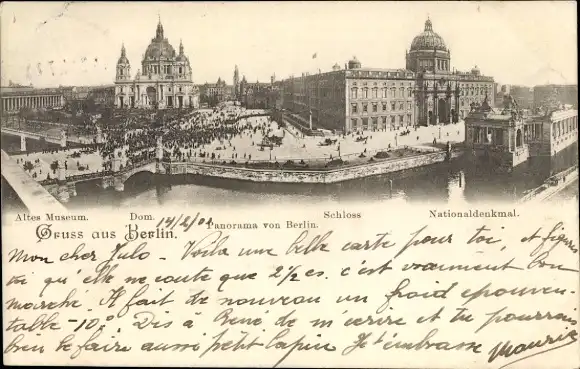 Altes Museum. Dom. Schloss Nationaldenkmal.
Gruss aus Berlin. 14/2/01 Panorama von Berlin.
Mon cher Julo - Voila une belle carte pour toi, et figure
toi qu'elle ne coute que 2½ cs. c'est vraiment bon
marché. Il fait de nouveau un froid épouven-
table -10° Dis à René de m'ecrire et tu pourrais
bien le faire aussi petit lapin Je t'embrasse Maurice